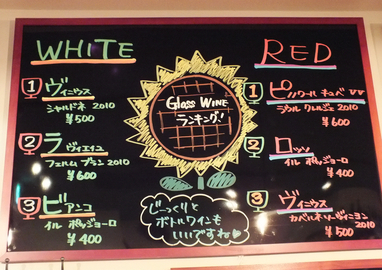 WHITE
1 ヴィニウス
シャルドネ 2010
¥500
2 ラ ヴィエイユ
フェルム ブラン 2010
¥600
3 ビアンコ
イル ポッジョーロ
¥400
Glass WINE
ランキング!
じっくりと
ボトルワインも
いいですね♥
RED
1
ラウル クレルジェ 2010
¥600
2 ロッソ
イル ポッジョーロ
¥400
3 ヴィニウス
カベルネソーヴィニヨン
2010
¥500